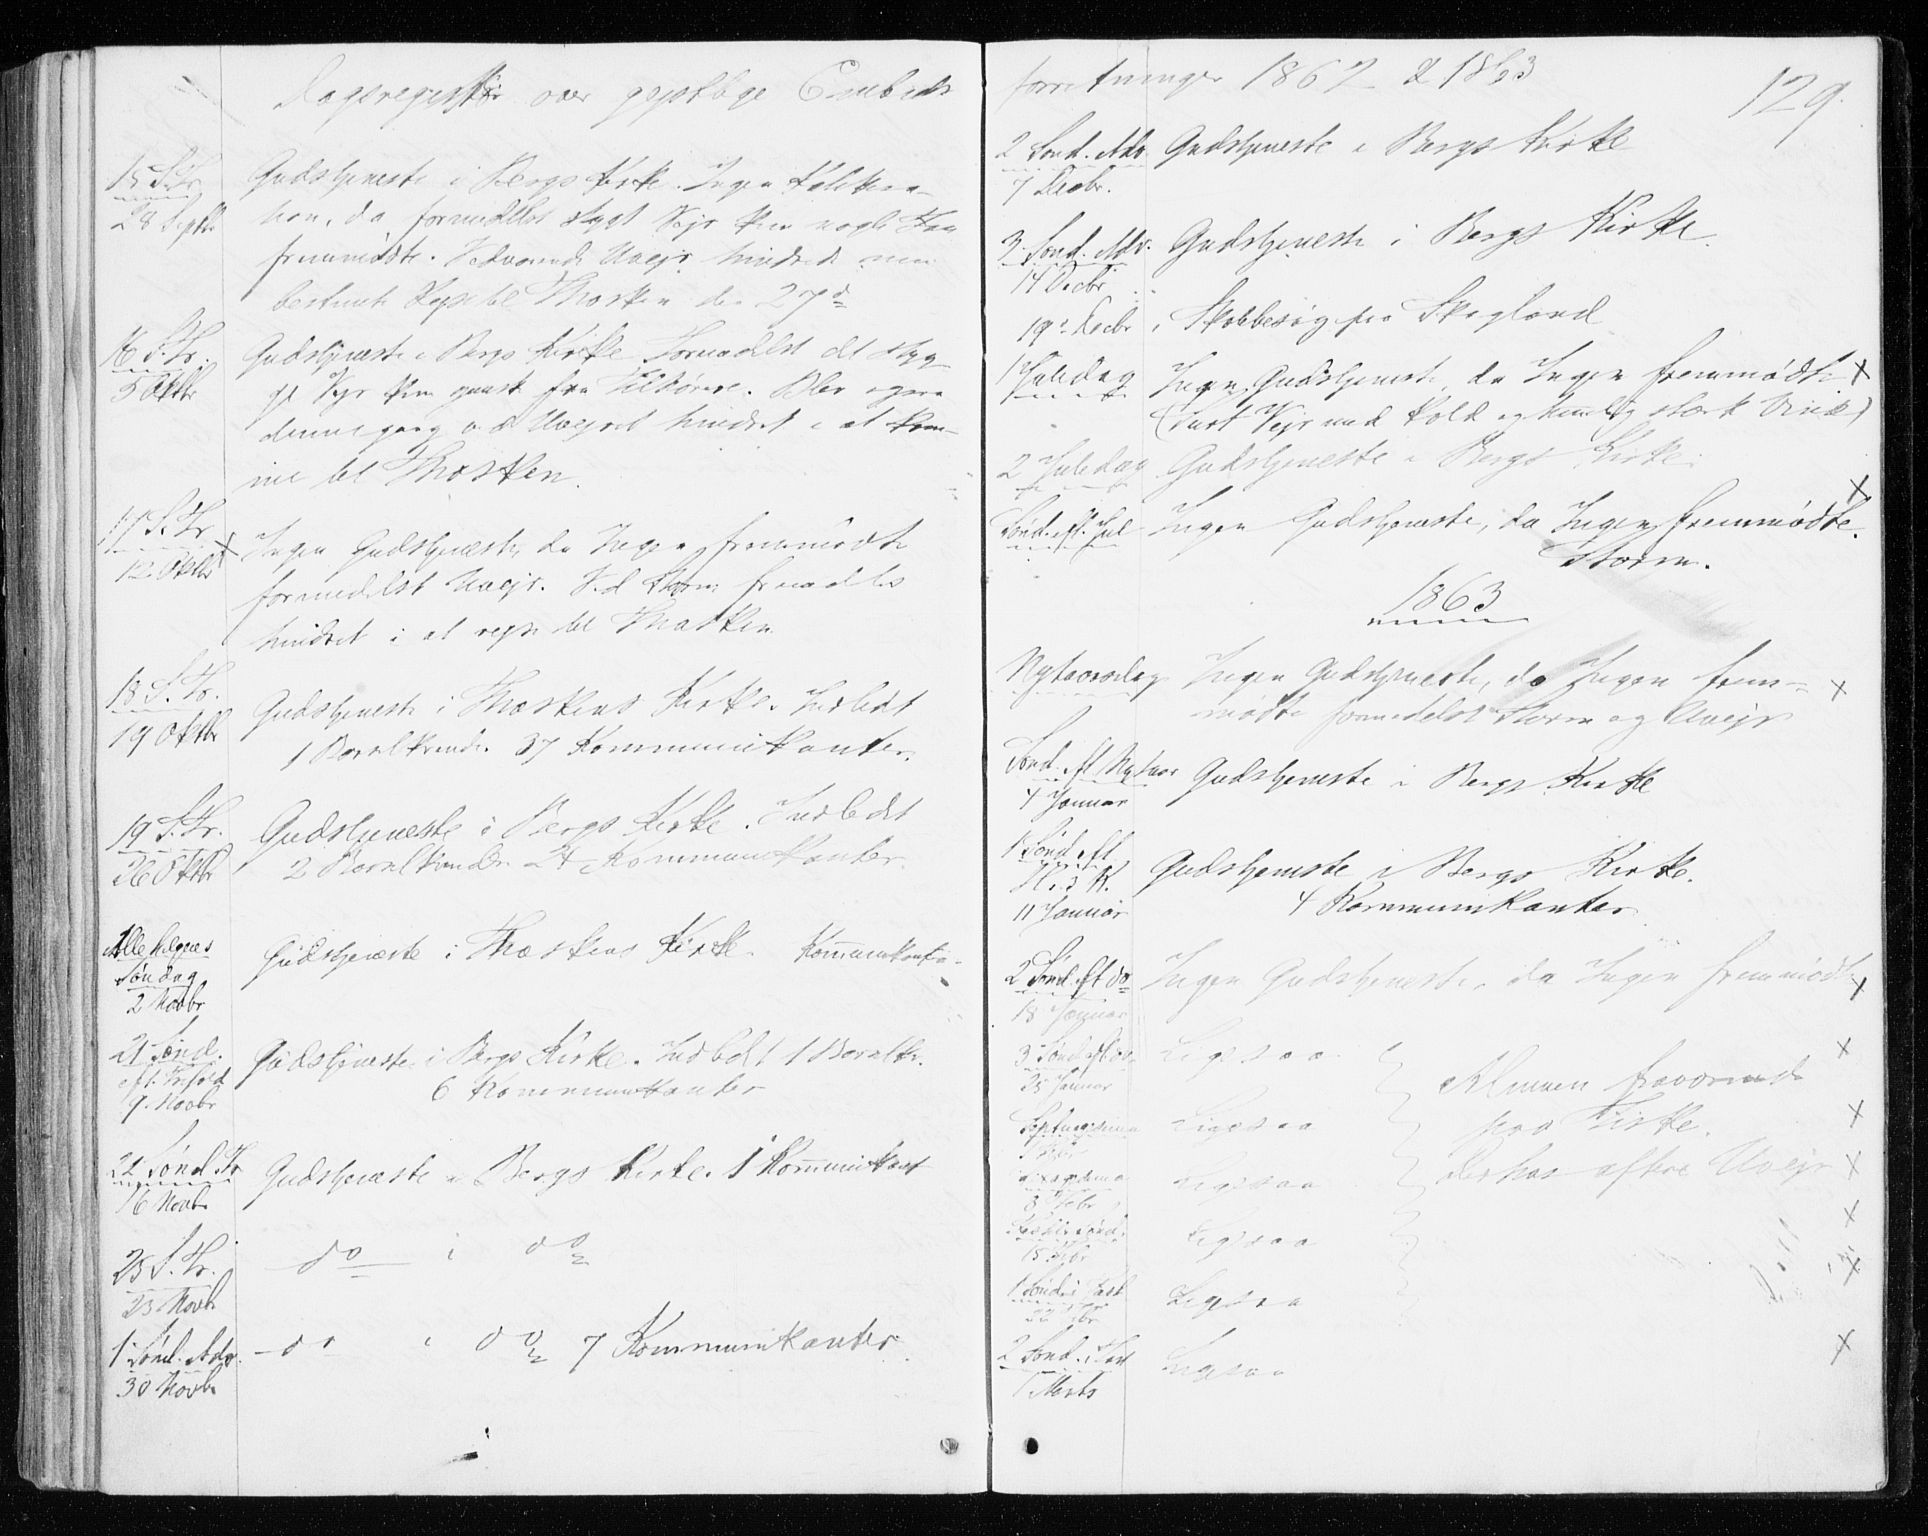 Dagsregister over gejstlige Embeds
15 S. Tr.
28 Septbr
Gudstjeneste i Bergs Kirke. Ingen Katekisa-
tion, da formedelst stygt Vejr kun nogle Faa
fremmødte. Vedvarende Uvejr hindrede min
bestemte Rejse til Thorsken den 27de
16 S. Tr.
5 Oktbr
Gudstjeneste i Bergs Kirke. Formedelst det styg-
ge Vejr kun ganske faa Tilhørere. Blev ogsaa
denne gang ved Uvejret hindret i at kom-
me til Thorsken.
17 S. Tr.
12 Oktbr
× Ingen Gudstjeneste, da Ingen fremmødte
formedelst Uvejr. Ved Storm fremdeles
hindret i at rejse til Thorsken
18 S. Tr.
19 Oktbr
Gudstjeneste i Thorskens Kirke. Indledt
1 Barselkvinde. 37 Kommunikanter.
19 S. Tr.
26 Oktbr
Gudstjeneste i Bergs Kirke. Indledt
2 Barselkvinder 24 Kommunikanter
Alle helgens
Søndag
2 Novbr
Gudstjeneste i Thorskens Kirke. Kommunikanter
21 Sønd.
eft. Trefold
9. Novbr
Gudstjeneste i Bergs Kirke. Indledt 1 Barselkv.
6 Kommunikanter
22 Sønd Tr
16 Novb.
Gudstjeneste i Bergs Kirke. 1 Kommunikant
23 S. Tr.
23 Novb
do i do
1 Sønd. Adv.
30 Novb.
do i do 7 Kommunikanter
forretninger 1862 & 1863
129.
2 Sønd. Adv.
7 Decbr.
Gudstjeneste i Bergs Kirke
3 Sønd. Adv.
14 Decbr
Gudstjeneste i Bergs Kirke.
19. Decbr
i Skolebesøg paa Skagland
1 Juledag
Ingen Gudstjeneste, da Ingen fremmødte ×
(surt Vejr med Kold og temmelig stærk Vind)
2 Juledag
Gudstjeneste i Bergs Kirke.
Sønd. eft. Jul
Ingen Gudstjeneste, da Ingen fremmødte. ×
Storm.
1863
Nytaarsdag
Ingen Gudstjeneste, da Ingen frem- ×
mødte formedelst Storm og Uvejr
Sønd. eft Nytaar
4 Januar
Gudstjeneste i Bergs Kirke
1 Sønd eft
H. 3 K.
11 Januar
Gudstjeneste i Bergs Kirke.
4 Kommunikanter
2 Sønd. eft do
18 Januar
Ingen Gudstjeneste, da Ingen fremmødte ×
3 Sønd eft do
25 Januar
Ligesaa ×
Almuen fraværende
paa Fiske.
derhos oftere Uvejr
Septuagesima
1 Febr
Ligesaa ×
Sexagesima
8 Febr
Ligesaa ×
Fastel. Sønd.
15 Febr
Ligesaa ×
1 Sønd i Fast
22 Febr
Ligesaa ×
2 Sønd. i Fast
1 Marts
Ligesaa ×